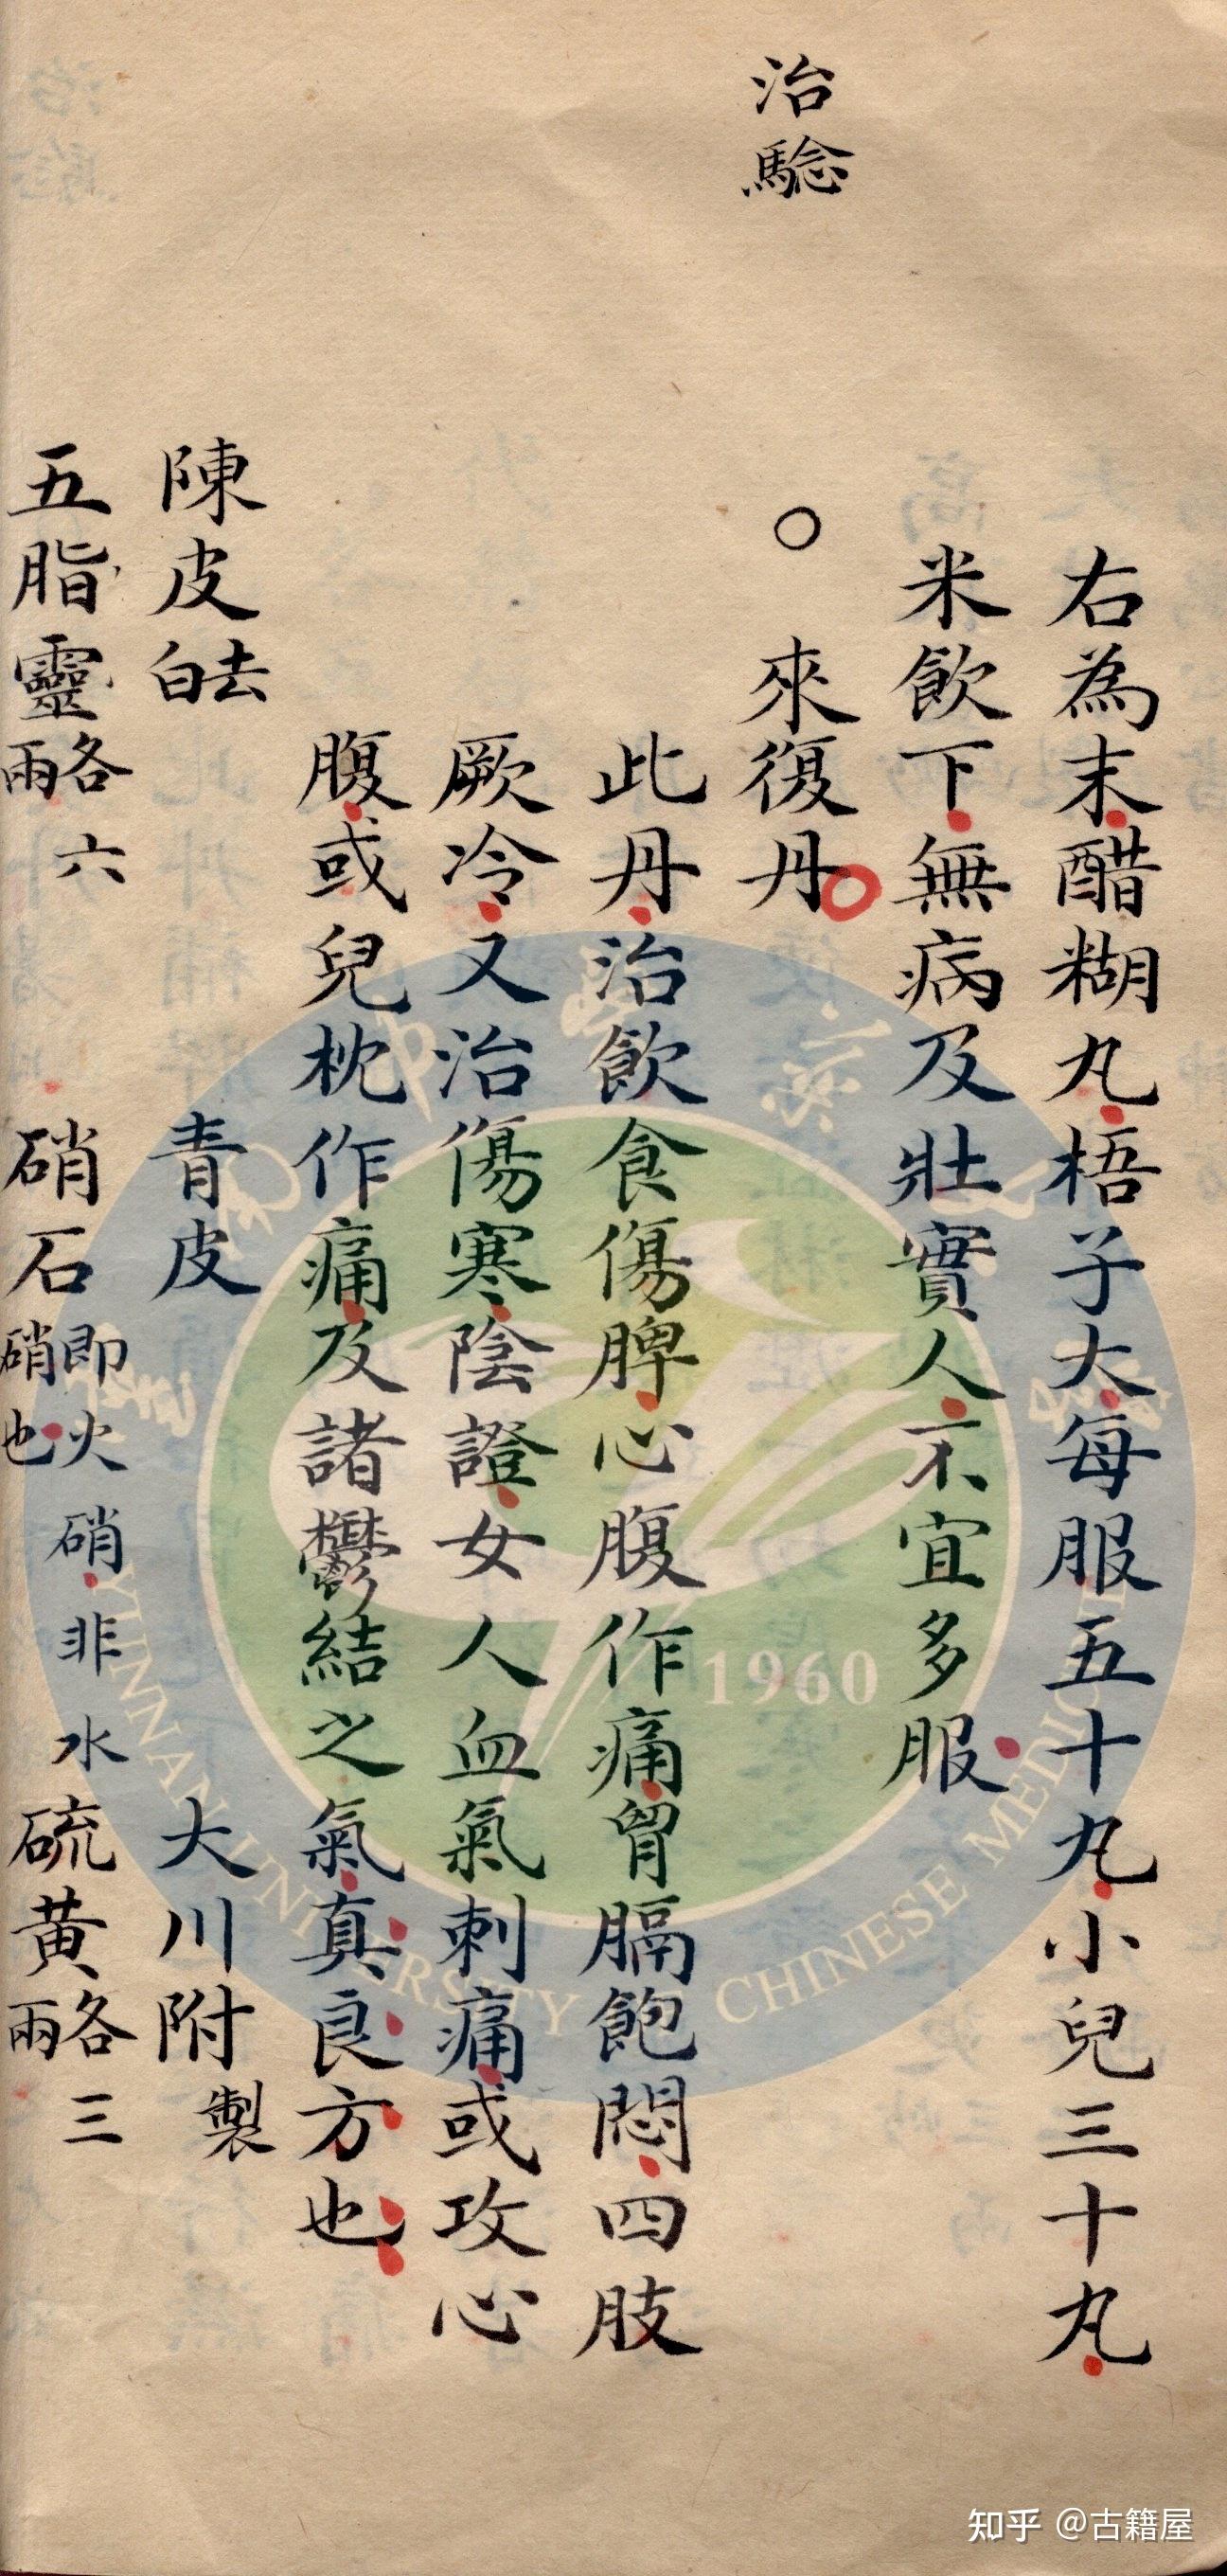 右為末醋糊丸梧子大每服五十丸小兒三十丸
米飲下無病及壯實人不宜多服
治騐
○來復丹
此丹治飲食傷脾心腹作痛胷膈飽悶四肢
厥冷又治傷寒陰證女人血氣刺痛或攻心
腹或兒枕作痛及諸鬱結之氣真良方也
陳皮去白 青皮 大川附製
五脂靈各六兩 硝石即火硝非水硝也 硫黄各三兩
1960
知乎 @古籍屋